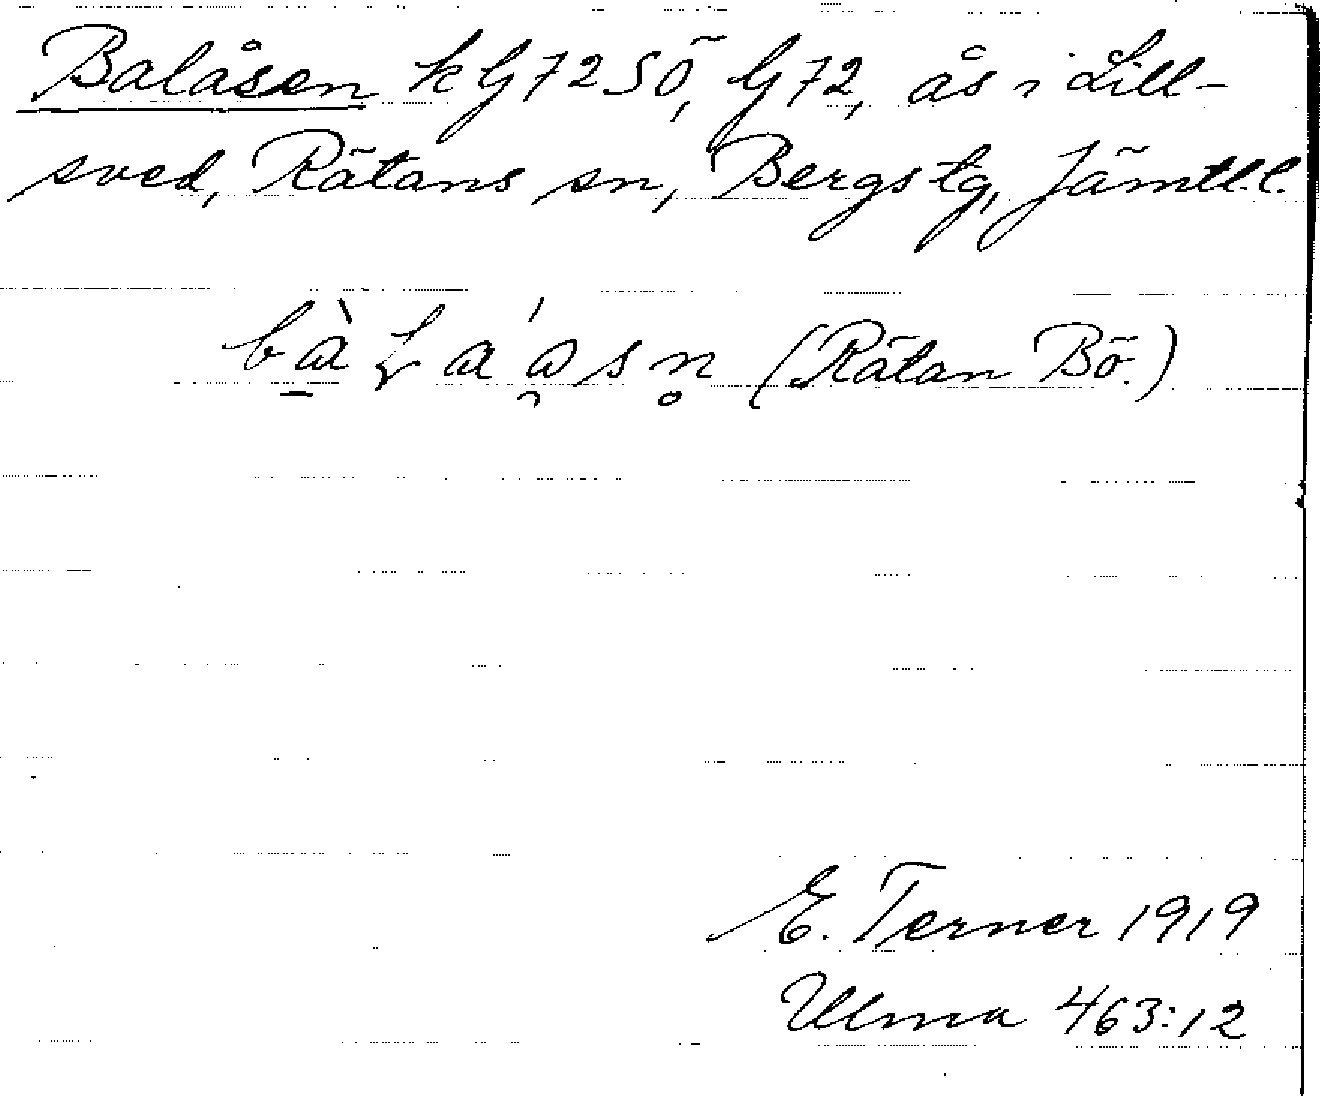 Balåsen k G 72 SÖ, G 72, ås i Lill-
sved, Rätans sn, Bergs tg, Jämtl. l.
(Rätan Bö.)
E. Terner 1919
Ulma 463:12